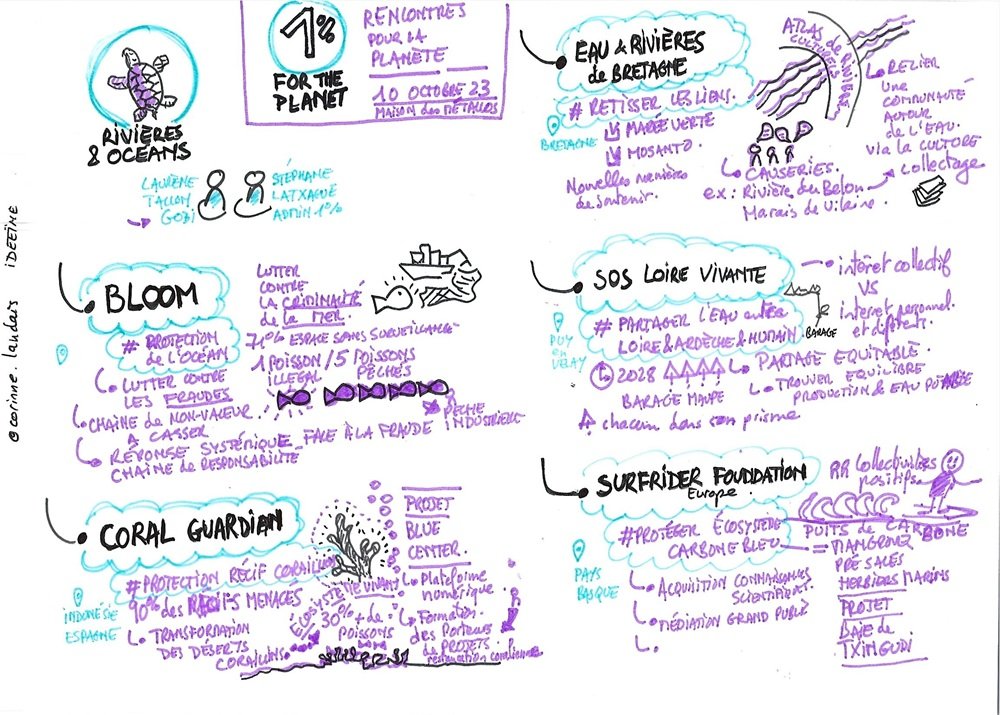 RIVIÈRES
& OCEANS
1%
FOR THE
PLANET
RENCONTRES
POUR LA
PLANÈTE
10 OCTOBRE 23
MAISON des MÉTALLOS
LAURÈNE
TALLON
GOBI
STÉPHANE
LATXAGUE
ADMIN 1%
@corinne.laudais IDEEÏNE
BLOOM
# PROTECTION
de L'OCÉAN
LUTTER CONTRE
LES FRAUDES
CHAINE de NON-VALEUR
A CASSER
RÉPONSE SYSTÉMIQUE FACE À LA FRAUDE
CHAINE de RESPONSABILITÉ
LUTTER
CONTRE
LA CRIMINALITÉ
de la MER.
71% ESPACE SANS SURVEILLANCE
1 POISSON / 5 POISSONS
ILLEGAL PÊCHÉS
PÊCHE
INDUSTRIELLE
CORAL GUARDIAN
#PROTECTION RÉCIF CORAILLIEN
INDONÉSIE
ESPAGNE
90% des RÉCIFS MENACÉS
TRANSFORMATION
DES DÉSERTS
CORALLIENS
ECOSYSTÈME VIVANT
30% + de
POISSONS
PROJET
BLUE
CENTER.
Plateforme
numérique.
Formation
des Porteurs
de PROJETS
EAU & RIVIÈRES
de BRETAGNE
# RETISSER LES LIENS.
BRETAGNE
MARÉE VERTE
MOSANTO.
Nouvelles manières
de soutenir.
ATLAS de RIVIÈRE
CULTURELS
RELIER
une
COMMUNAUTÉ
AUTOUR
de L'EAU.
via la CULTURE
collectage
CAUSERIES.
ex: Rivière du Belon
Marais de Vilaine.
SOS LOIRE VIVANTE
# PARTAGER L'EAU entre
LOIRE & ARDÈCHE & HUMAIN
PUY
en
VELAY
2028
BARAGE
BARAGE
PARTAGE EQUITABLE
TROUVER EQUILIBRE
PRODUCTION & EAU POTABLE
chacun dans son prisme
intérêt collectif
VS
interet personnel
et different.
SURFRIDER FOUNDATION
Europe.
#PROTÉGER ÉCOSYSTÈME
CARBONE BLEU
PAYS
BASQUE
ACQUISITION CONNAISSANCES
SCIENTIFIQUES.
MÉDIATION GRAND PUBLIC
Collectivités
positifs.
PUITS de CARBONE
= MANGROVE
PRÉ SALÉS
HERBIERS MARINS
PROJET
BAIE de
TXINGUDI